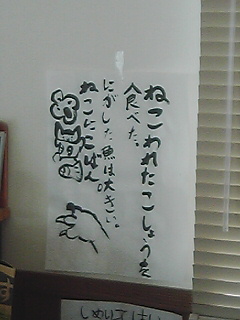 ねこわれたこしょうを
食べた。
にがした魚は大きい。
ねこにこばん。
す